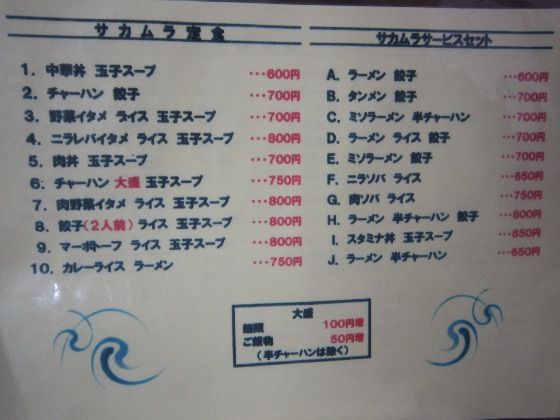 サカムラ定食
1．中華丼 玉子スープ ･･･600円
2．チャーハン 餃子 ･･･700円
3．野菜イタメ ライス 玉子スープ ･･･700円
4．ニラレバイタメ ライス 玉子スープ ･･･800円
5．肉丼 玉子スープ ･･･700円
6．チャーハン 大盛 玉子スープ ･･･750円
7．肉野菜イタメ ライス 玉子スープ ･･･800円
8．餃子(2人前) ライス 玉子スープ ･･･800円
9．マーボトーフ ライス 玉子スープ ･･･800円
10．カレーライス ラーメン ･･･750円
サカムラサービスセット
A．ラーメン 餃子 ･･･600円
B．タンメン 餃子 ･･･700円
C．ミソラーメン 半チャーハン ･･･700円
D．ラーメン ライス 餃子 ･･･700円
E．ミソラーメン 餃子 ･･･700円
F．ニラソバ ライス ･･･650円
G．肉ソバ ライス ･･･750円
H．ラーメン 半チャーハン 餃子 ･･･800円
I．スタミナ丼 玉子スープ ･･･850円
J．ラーメン 半チャーハン ･･･650円
大盛
麺類 100円増
ご飯物 50円増
(半チャーハンは除く)